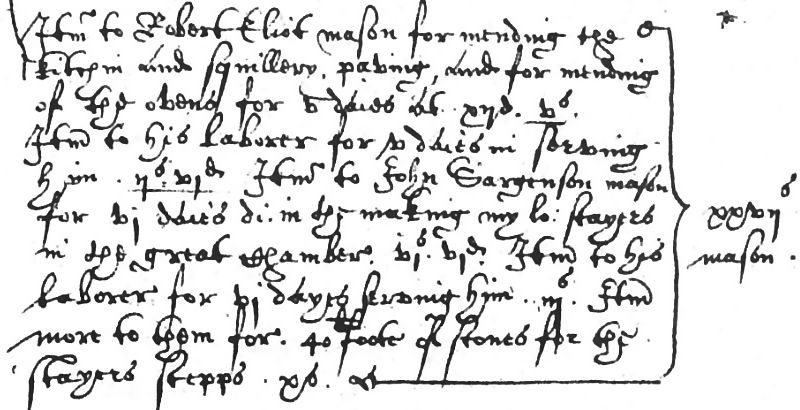 Itm to Robert Eliot mason for mending the
kitchin and squillery, paving, and for mending
of the ovens for v daies at xijd. vs.
Itm to his laborer for v daies in serving
hym ijs. vjd. Itm to John Sargenson mason
for vj daies di. in the making my lo: stayers
in the great chamber. vjs. vjd. Itm to his
laborer for vj dayes serving him. iijs. Itm
more to them for 40 foote of stones for the
stayers stepps. xs.
xxvijs
mason.